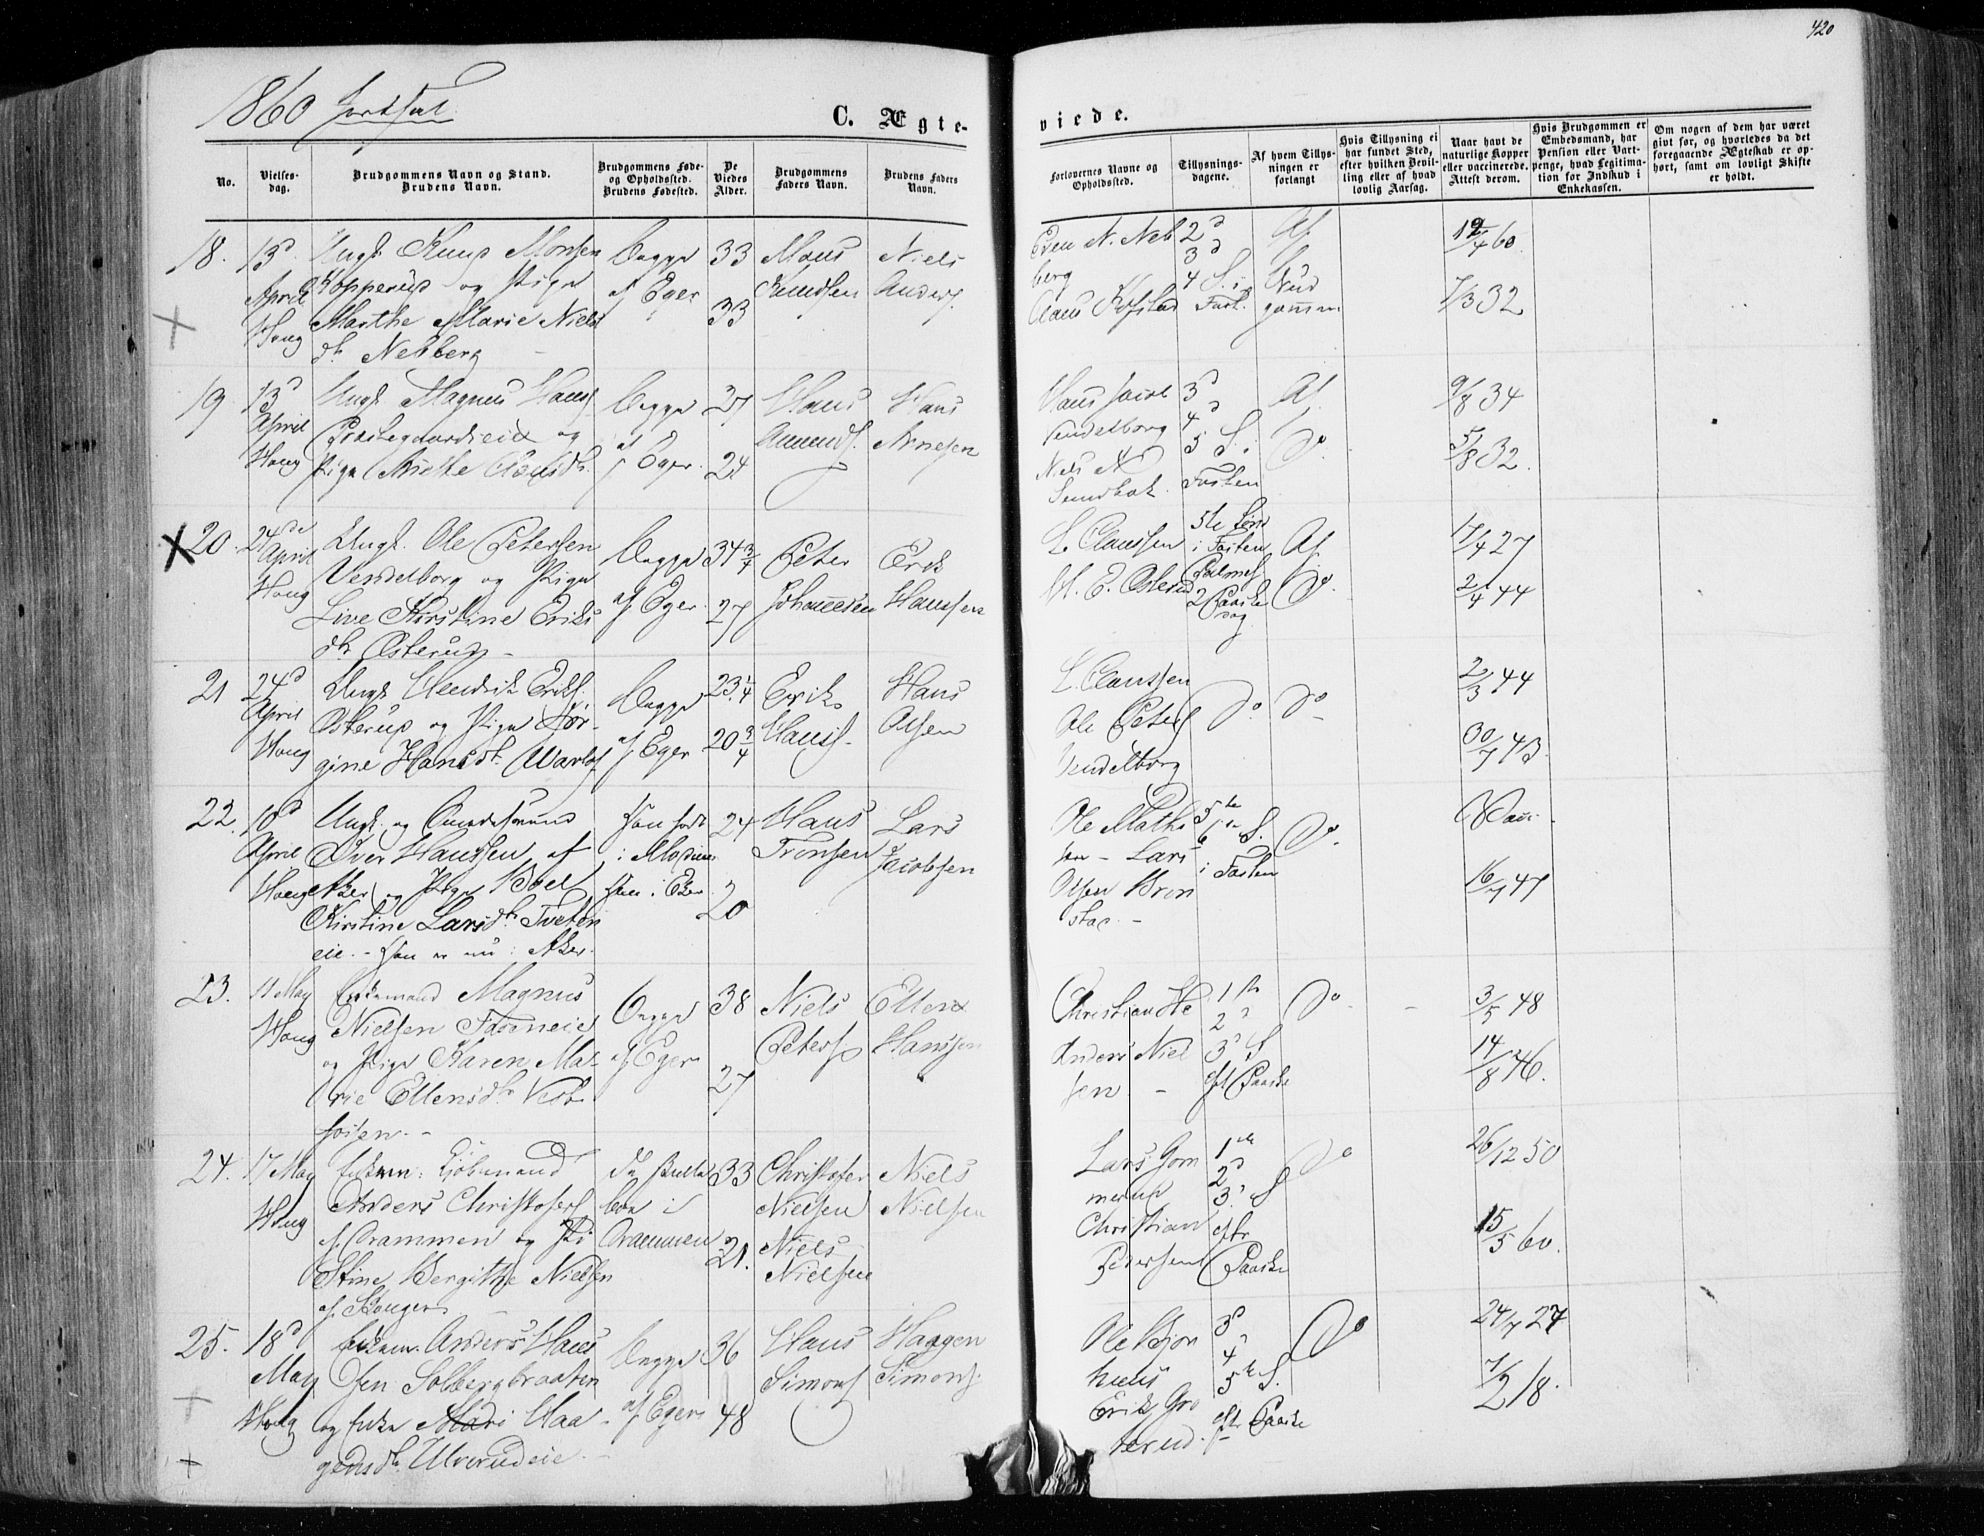 420
1860 Fortsat
C. Ægte-
viede.
No.
Vielses-
dag.
Brudgommens Navn og Stand.
Brudens Navn.
Brudgommens Føde-
og Opholdssted.
Brudens Fødested.
De
Viedes
Alder.
Brudgommens
Faders Navn.
Brudens Faders
Navn.
Forlovernes Navne og
Opholdssted.
Tillysnings-
dagene.
Af hvem Tillys-
ningen er
forlangt
Hvis Tillysning ei
har fundet Sted,
efter hvilken Bevil-
ling eller af hvad
lovlig Aarsag.
Naar havt de
naturlige Kopper
eller vaccinerede.
Attest derom.
Hvis Brudgommen er
Embedsmand, har
Pension eller Vart-
penge, hvad Legitima-
tion for Indskud i
Enkekassen.
Om nogen af dem har været
givt før, og hvorledes da det
foregaaende Ægteskab er op-
hørt, samt om lovligt Skifte
er holdt.
18.
13d
April
Houg
Ungk. Knud Monsen
Hopperud og Pige
Marthe Marie Niels
dr. Nebberg
Begge
af Eger
33
33
Mons
Knudsen
Niels
Anders.
Even N. Neb
berg
Claus Kofstad
2d
3d
4 S. i
Fast.
Af
Brud
gommen
19/4 60.
7/3 32
19
13d
April
Houg
Ungk. Magnus Hans.
Præstegaardseie og
Pige Anethe Hansdr.
Begge
af Eger.
27
24
Hans
Amunds.
Hans
Arnesen
Hans Jacob
Vendelborg
Niels N
Sundhok.
3d
4d
5 S. i
Fasten
Af
Do.
9/8 34
5/8 32.
20.
24de
April
Houg
Ungk. Ole Petersen
Vendelborg og Pige
Live Kirstine Eriks
dr. Østerud
Begge
af Eger.
34 3/4
27
Peter
Johannesen
Erik
Hansen
L. Claussen
H. E. Østerud
5te Sønd
i Fasten
Palmes.
2 Paaske
dag
Af
Do.
17/4 27
2/4 44
21
24d
April
Houg
Ungk Hendrik Eriks.
Østerud og Pige Jør-
gine Hansdr. Warlo.
Begge
af Eger
23 1/4
20 3/4
Erik
Hanss.
Hans
Olsen
L. Claussen
Ole Peters.
Vendelborg
Do
Do
2/3 44
30/7 43.
22.
10d
April
Houg
Iver Hanssen af
Aker og Pige Boel
Kirstine Larsdr. Tveten
eie. - Han er nu i Aker.
Han født
i Modum
Hun i Eker
24
20
Hans
Tronsen
Lars
Jacobsen
Ole Mathi
sen - Lars
Olsen Bron
stad. -
5te
6te S.
i Fasten
Do.
16/7 47
23.
11 May
Houg
Enkemand Magnus
Nielsen Foseneie
og Pige Karen Ma-
rie Ellensdr. Vest
fossen. -
Begge
af Eger
38
27
Niels
Peters.
Ellen
Hanssen
Christian He
Anders Niel
sen -
1ste
2d
3d S
eft Paaske
Do
3/5 48
14/8 46.
24.
17 May
Houg
Enkem: Kjøbmand
Anders Christofers.
af Drammen og Pi
Stine Bergithe Nielsen
af Kongers.
Drammen
33
21.
Christofer
Nielsen
Niels
Nielsen
Niels
Nielsen
Lars Gom
merud
Christian
Pedersen
1ste
2d
3d S
eftr
Paaske
Do
26/12 50
15/5 60.
25.
18d
May
Houg
Enkem. Anders Hans
sen Solbergbraaten
og Enke Mari Haa-
gensdr. Ulverudeie. -
Begge
af Eger
36
48
Hans
Simons.
Haagen
Simons.
Ole Bjon
huus
Erik Gro
terud.
3d
4
5te S.
eftr Paaske
Do
24/7 27
7/2 18.